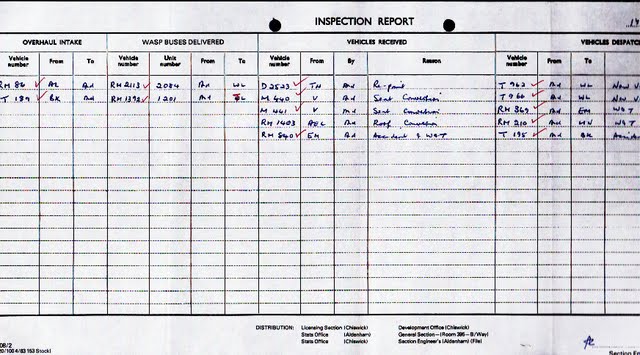 INSPECTION REPORT
OVERHAUL INTAKE WASP BUSES DELIVERED VEHICLES RECEIVED VEHICLES DESPATC
Vehicle number From To Vehicle number Unit number From To Vehicle number From By Reason Vehicle number From To
RM 84 AL Ad RM 2113 2084 Ad WL D 2523 TH Ad Re-paint T 963 Ad WL New V
T 189 BK Ad RM 1398 1201 Ad M 440 V Ad Seat Conversion T 966 Ad WL New V
M 441 V Ad Seat Conversion RM 369 Ad EM W&T
RM 1403 AEC Ad Roof Conversion RM 210 Ad W&T
RM 540 EM Ad Accident & W&T T 195 Ad BK Acciden
DISTRIBUTION: Licensing Section (Chiswick) Development Office (Chiswick)
Stats Office (Aldenham) General Section — (Room 395 – B/Way)
Stats Office (Chiswick) Section Engineer's (Aldenham) (File)
08/2
20/100 4/83 153 Stock)
Section En